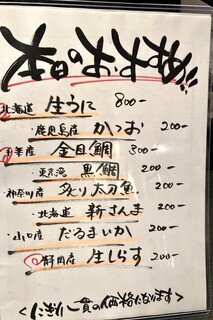 本日のおすすめ
北海道 生うに 800-
・鹿児島産 かつお 200-
千葉産 金目鯛 300-
・東京湾 黒鯛 200-
・神奈川産 炙り太刀魚 200-
・北海道 新さんま 200-
・山口産 だるまいか 200-
静岡産 生しらす 200-
一貫の価格となります